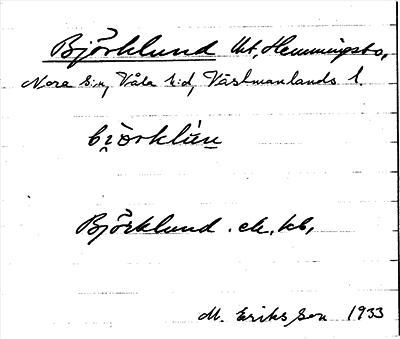 Björklund ht, Hemmingsbo,
Nora s:n, Våla h:d, Västmanlands l.
bi̯ö̀rklún
Björklund. ek. kb,
M. Eriksson 1933